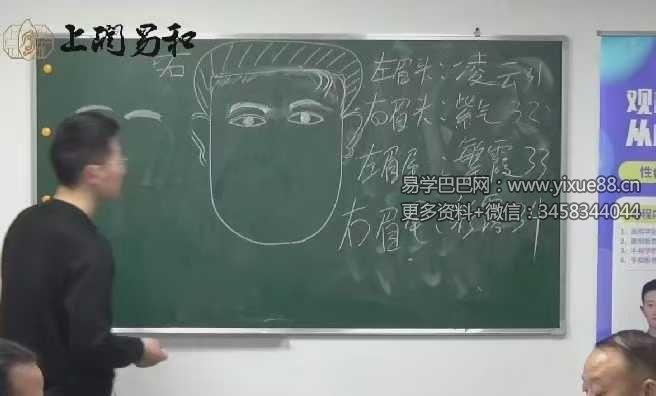 上润易和
左眉头:凌云31
右眉头:紫气32
左眉尾:繁霞33
易学巴巴网:www.yixue88.cn
更多资料+微信:3458344044
右眉尾:彩霞34
观
从
性